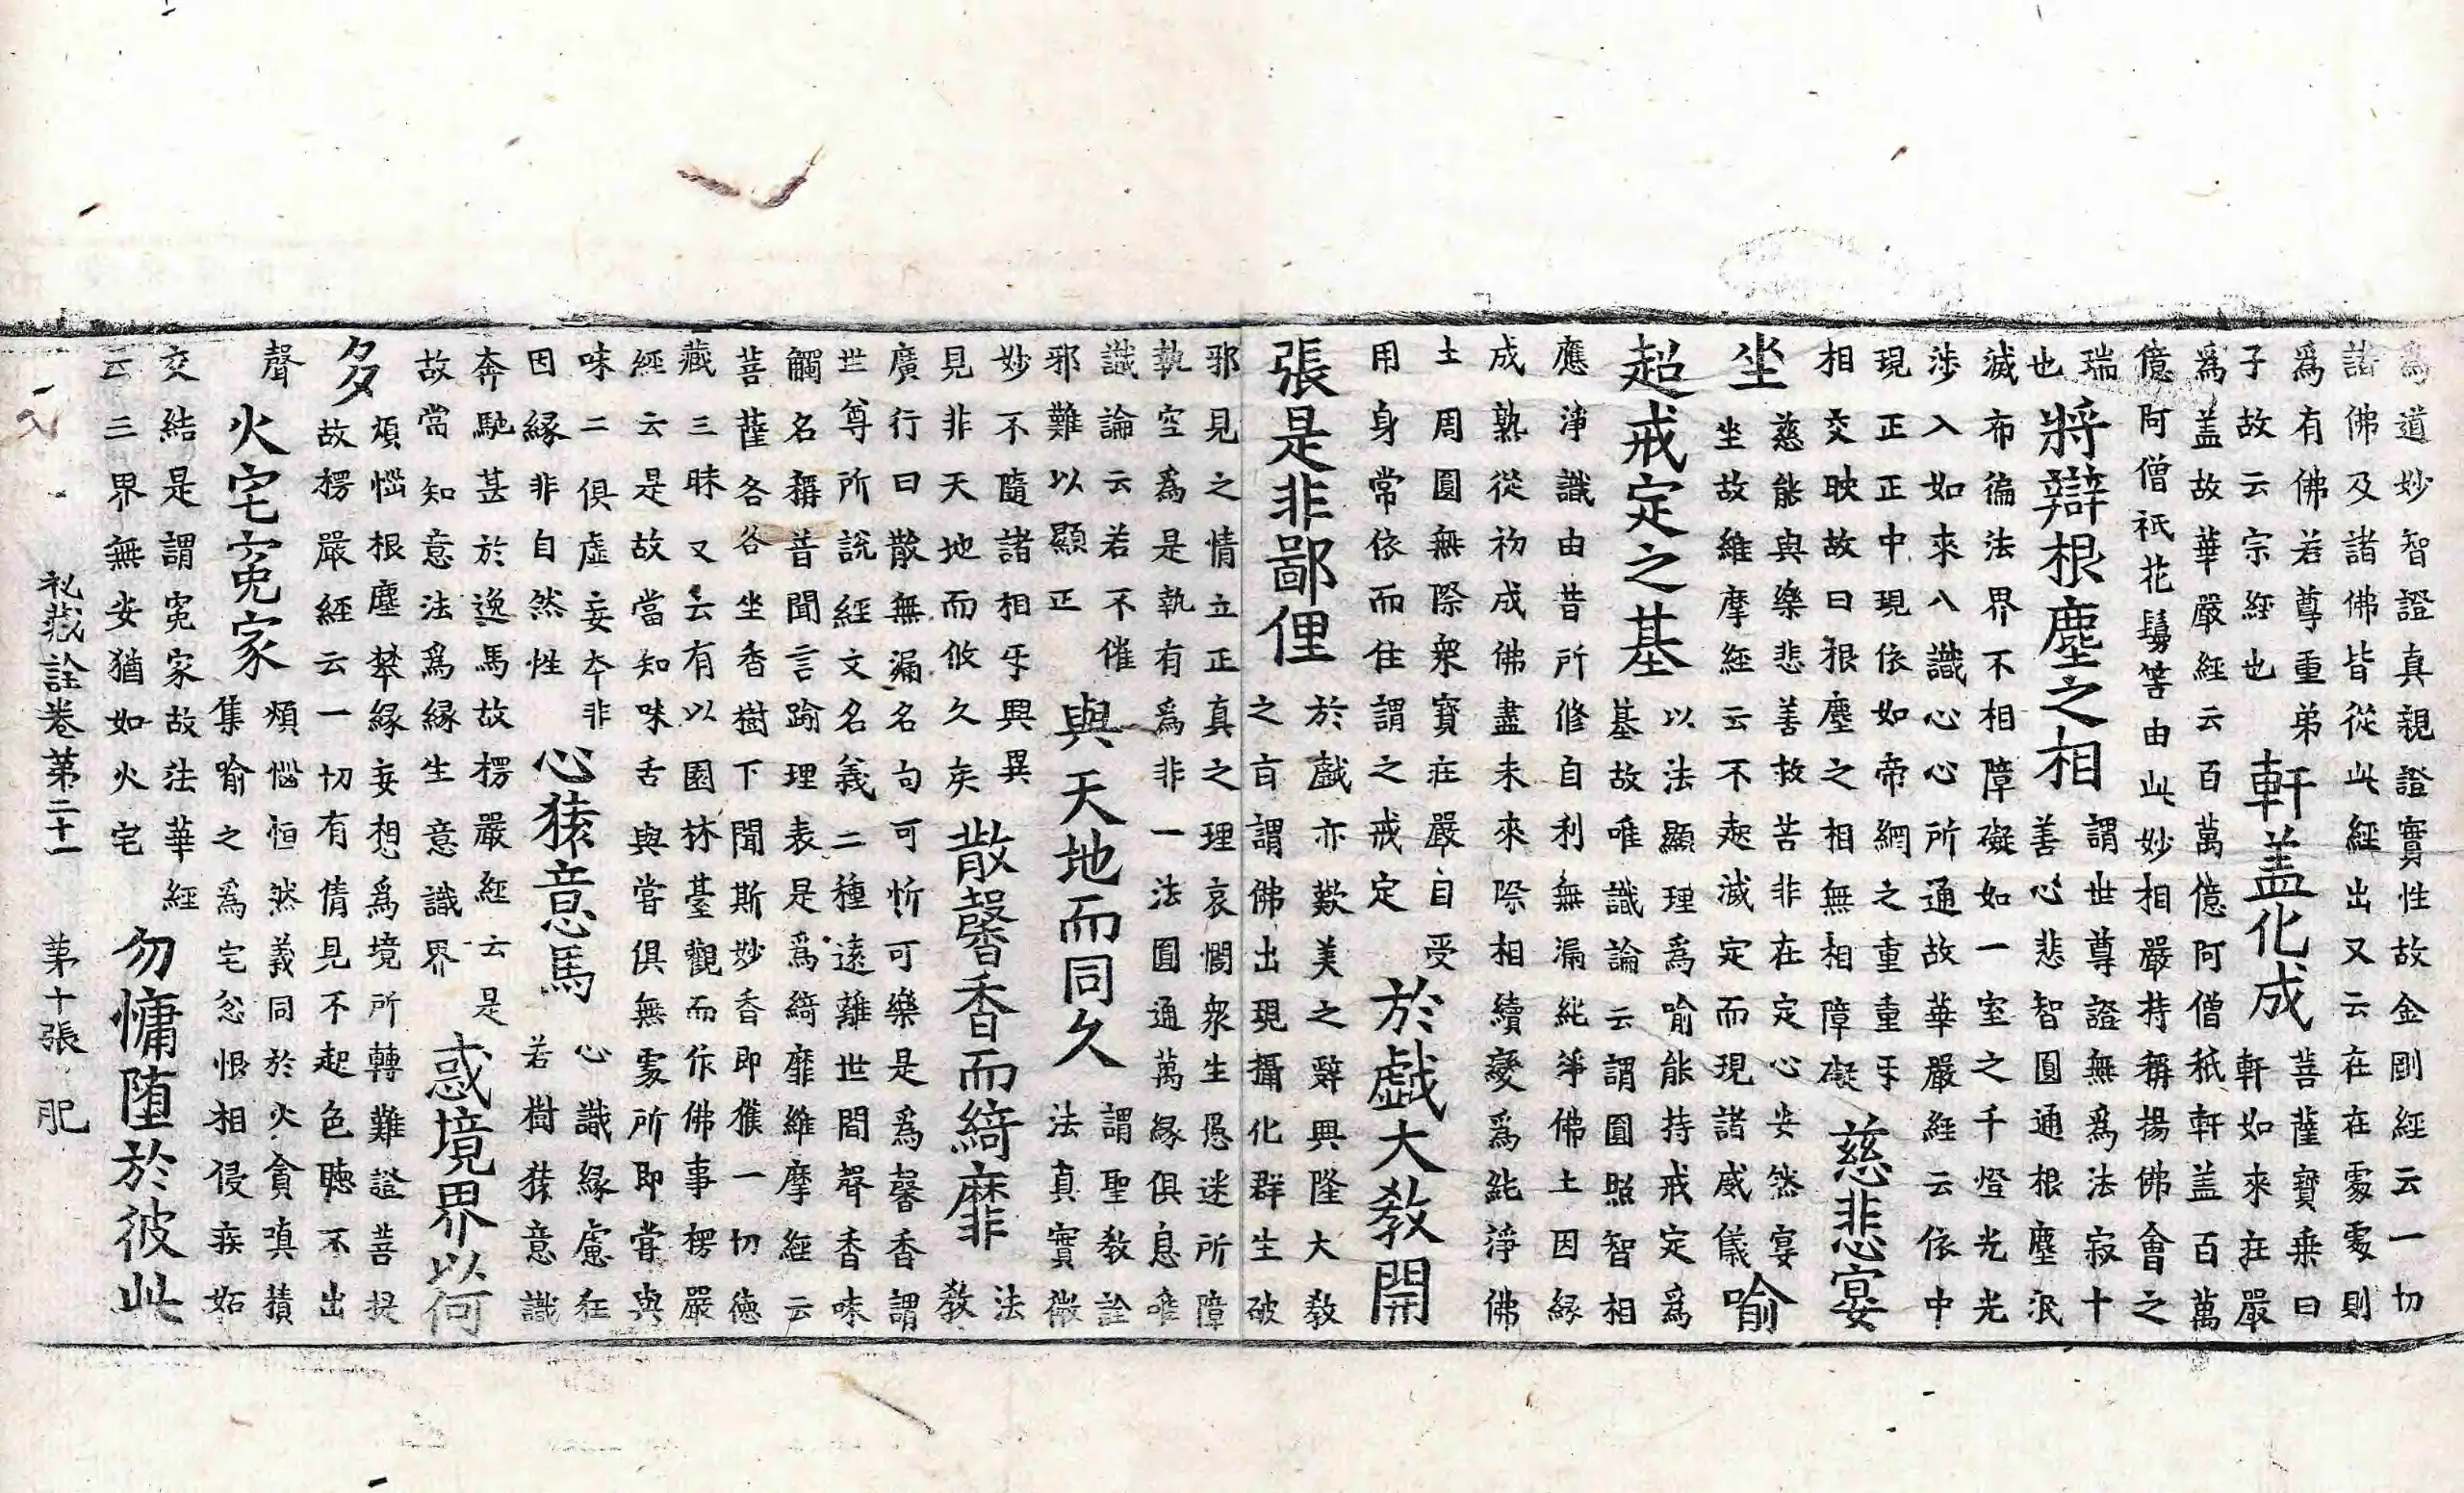 為道妙智證真親證實性故金剛經云一切
諸佛及諸佛皆從此經出又云在在處處則
爲有佛若尊重弟
子故云宗經也
軒盖化成
菩薩寶乗曰
軒如來在嚴
爲盖故華嚴經云百萬億阿僧秖軒盖百萬
億阿僧祇花鬘等由此妙相嚴持稱揚佛會之
瑞
也
將辯根塵之相
謂世尊證無爲法寂十
善心悲智圓通根塵泯
滅布徧法界不相障礙如一室之千燈光光
涉入如來八識心心所通故華嚴經云依中
現正正中現依如帝網之重重乎
相交映故曰根塵之相無相障礙
慈悲宴
坐
慈能與樂悲善救苦非在定心安然宴
坐故維摩經云不起滅定而現諸威儀
喻
超戒定之基
以法顯理爲喻能持戒定爲
基故唯識論云謂圓照智相
應淨識由昔所修自利無漏純淨佛土因緣
成熟從初成佛盡未來際相續變爲純淨佛
土周圓無際衆寶莊嚴自受
用身常依而住謂之戒定
於戲大教開
張是非鄙俚
於戲亦歎美之辭興隆大教
之言謂佛出現攝化群生破
邪見之情立正真之理哀憫衆生愚迷所障
執空爲是執有爲非一法圓通萬緣俱息唯
識論云若不催
邪難以顯正
與天地而同久
謂聖教詮
法真實微
妙不隨諸相乎興異
見非天地而攸久矣
散馨香而綺靡
法
教
廣行曰散無漏名句可忻可樂是爲馨香謂
世尊所説經文名義二種遠離世間聲香味
觸名稱普聞言踰理表是爲綺靡維摩經云
菩薩各各坐香樹下聞斯妙香即獲一切德
藏三昧又云有以園林臺觀而作佛事楞嚴
經云是故當知味舌與嘗俱無處所即嘗與
味二俱虛妄本非
因緣非自然性
心猿意馬
心識緣慮狂
若樹猿意識
奔馳甚於逸馬故楞嚴經云是
故當知意法爲緣生意識界
惑境界以何
多
煩惱根塵攀緣妄想爲境所轉難證菩提
故楞嚴經云一切有情見不起色聽不出
聲
火宅寃家
煩惱恒然義同於火貪嗔積
集喻之爲宅忿恨相侵疾妬
交結是謂寃家故法華經
云三界無安猶如火宅
勿慵墮於彼此
秘藏詮卷第二十一 第十張 肥